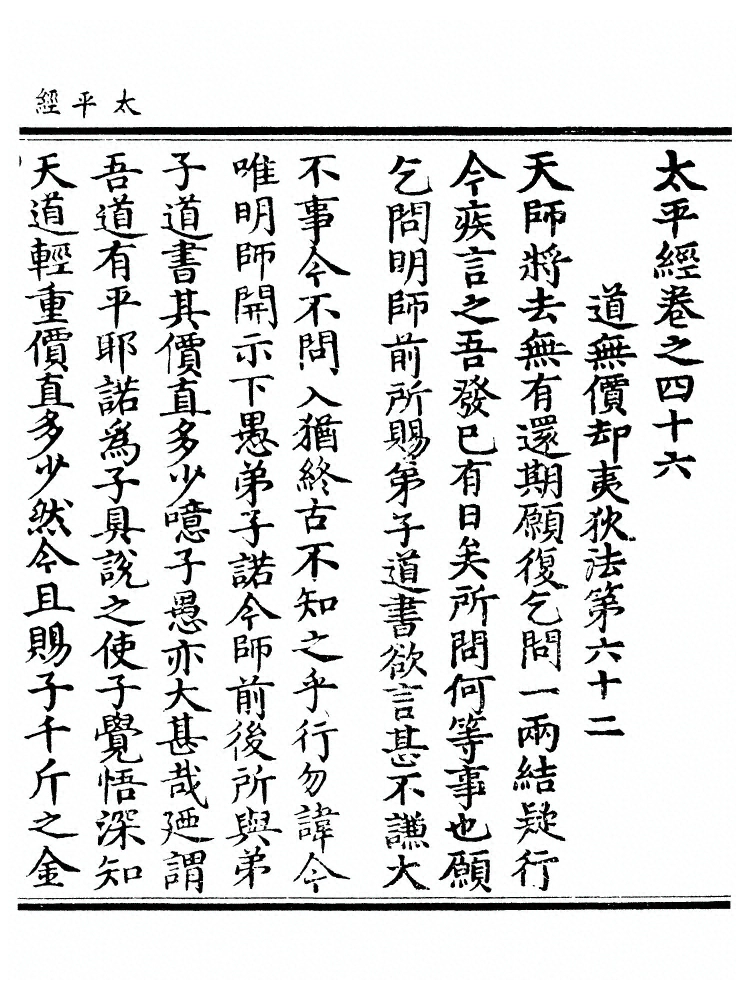 太平經
太平經卷之四十六
道無價却夷狄法第六十二
天師將去無有還期願復乞問一兩結疑行
今疾言之吾發已有日矣所問何等事也願
乞問明師前所賜弟子道書欲言甚不謙大
不事今不問入猶終古不知之乎行勿諱今
唯明師開示下愚弟子諾今師前後所與弟
子道書其價直多少噫子愚亦大甚哉廼謂
吾道有平耶諾為子具說之使子覺悟深知
天道輕重價直多少然今且賜子千斤之金